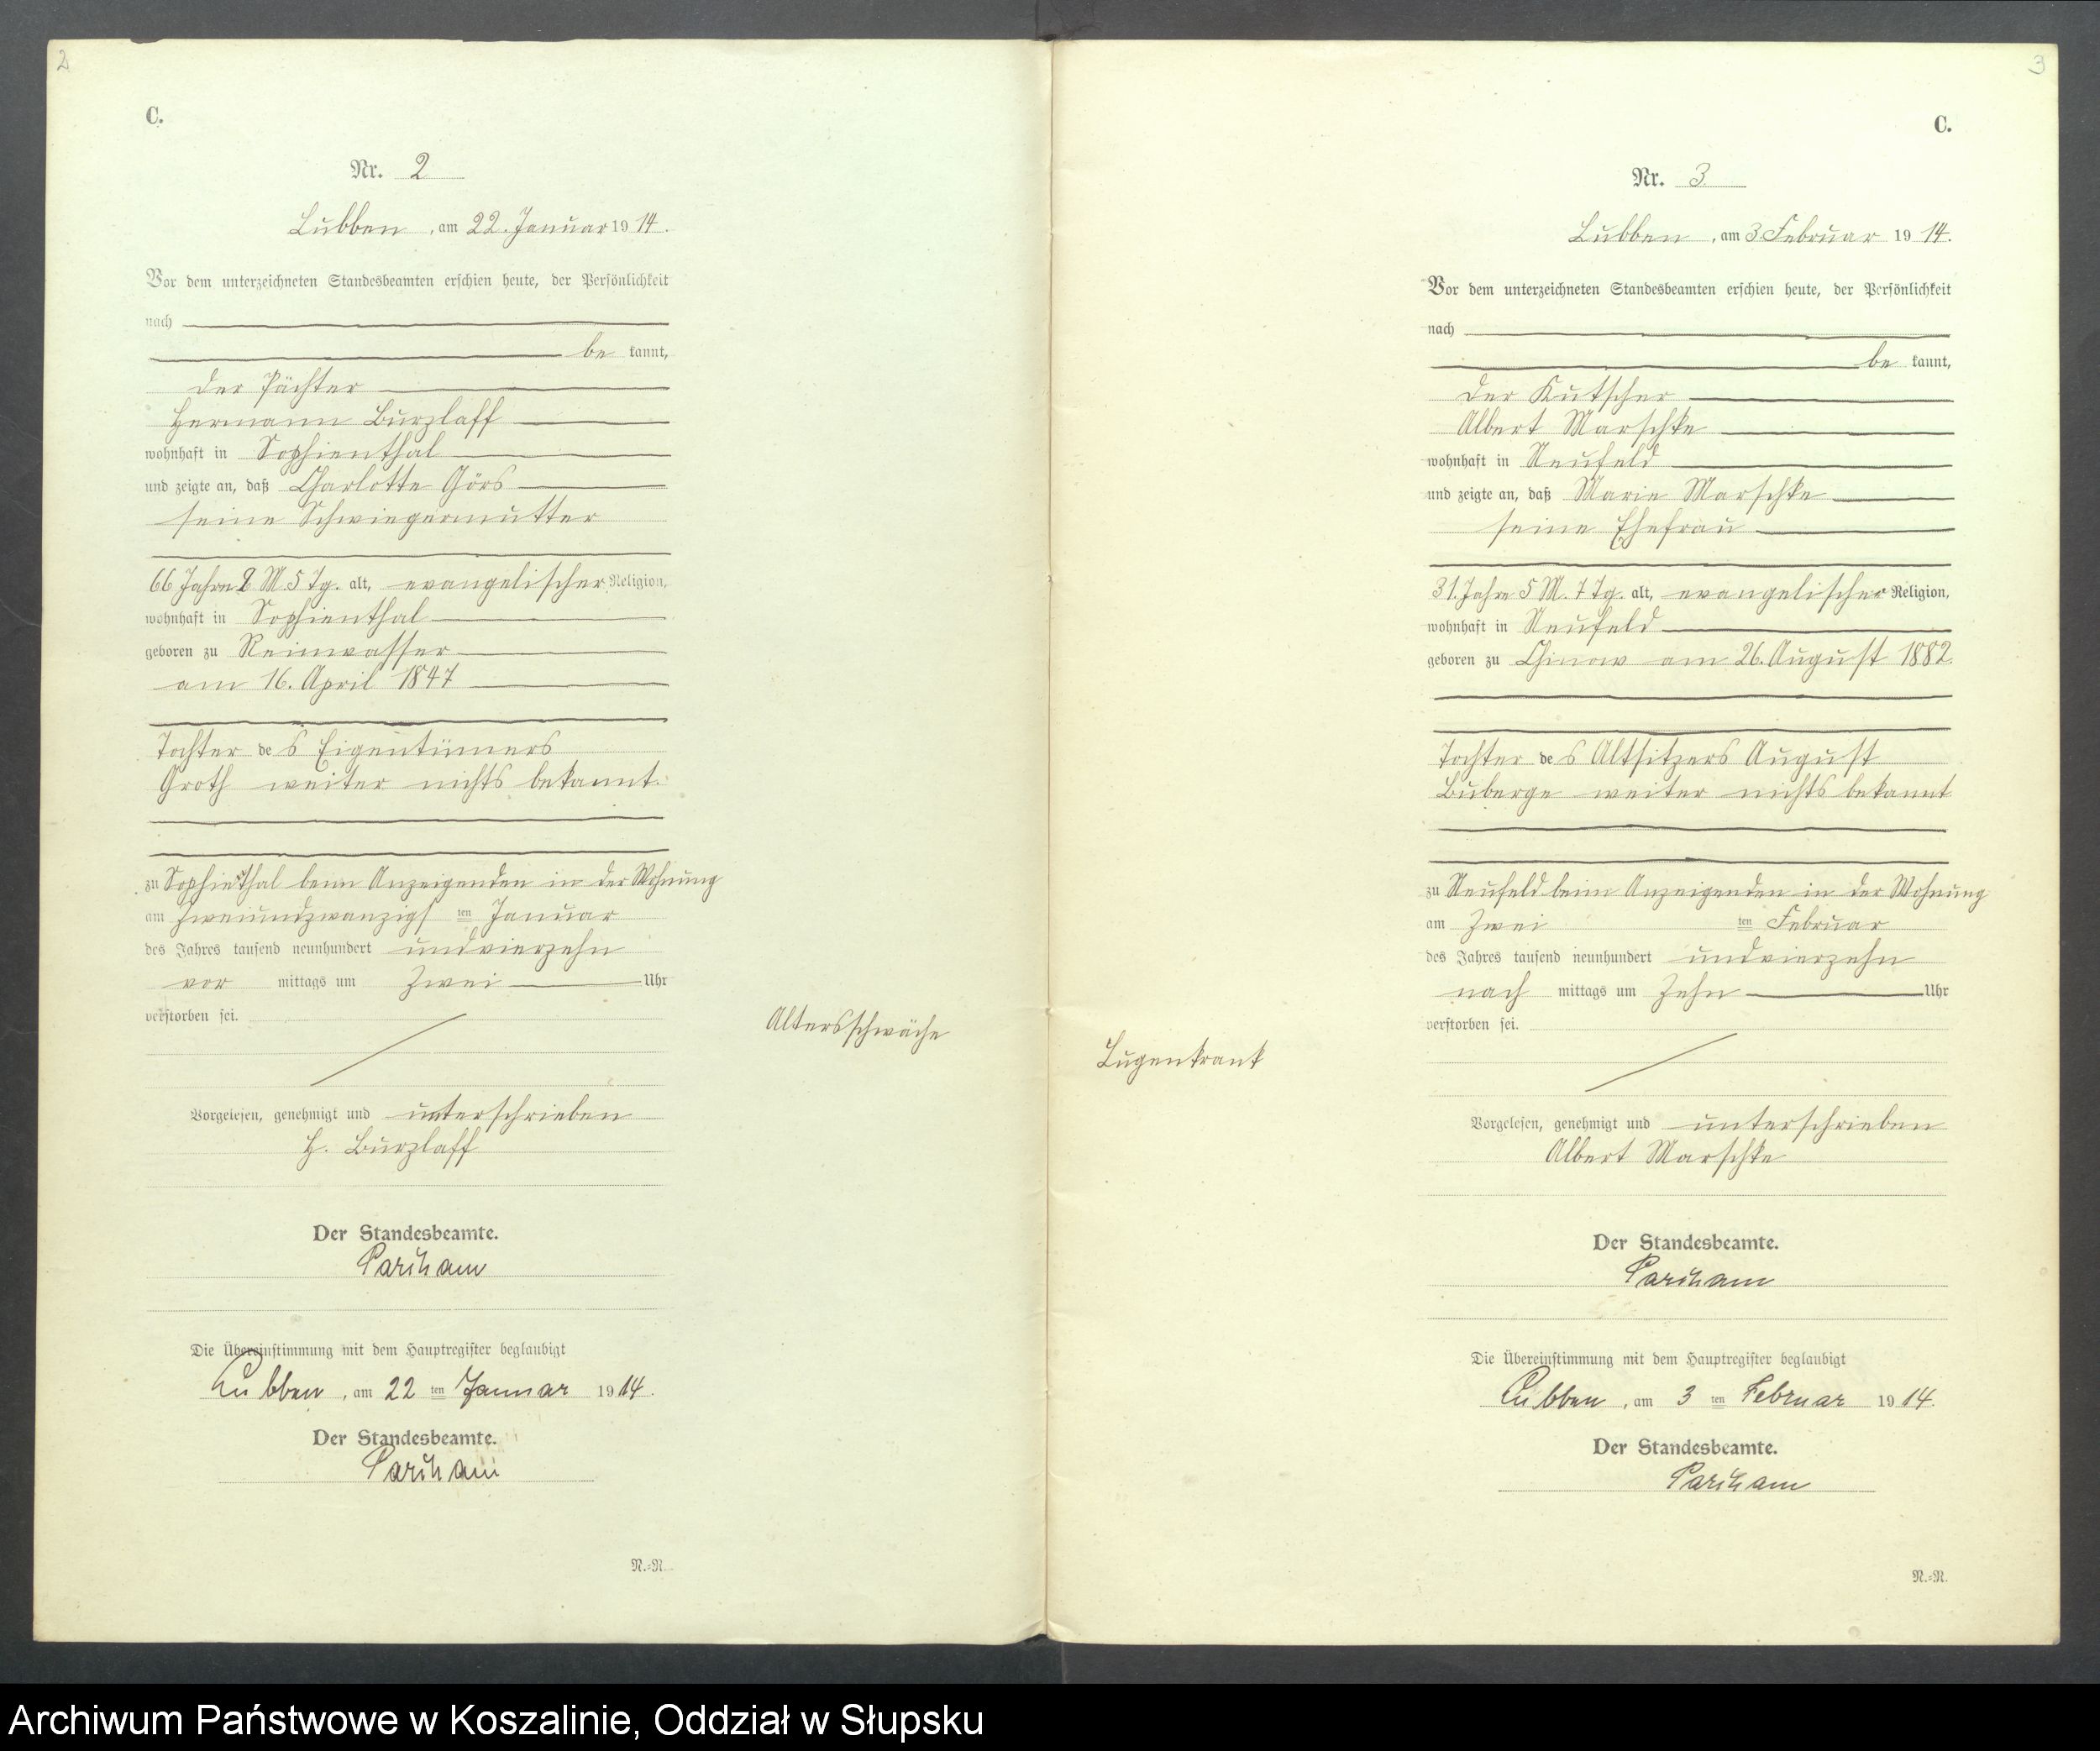 2
C.
Nr. 2
Lubben, am 22. Januar 1914.
Vor dem unterzeichneten Standesbeamten erschien heute, der Persönlichkeit
nach
be kannt,
der Pächter
Hermann Burzlaff
wohnhaft in Sophienthal
und zeigte an, daß Charlotte Görs
seine Schwiegermutter
66 Jahre 8 M. 5 Tg. alt, evangelischer Religion,
wohnhaft in Sophienthal
geboren zu Reinwasser
am 16. April 1847
Tochter des Eigentümers
Groth weiter nichts bekannt.
zu Sophienthal beim Anzeigenden in der Wohnung
am zweiundzwanzigsten Januar
des Jahres tausend neunhundert undvierzehn
vor mittags um zwei Uhr
verstorben sei.
Altersschwäche
Vorgelesen, genehmigt und unterschrieben
H. Burzlaff
Der Standesbeamte.
Die Übereinstimmung mit dem Hauptregister beglaubigt
Lubben, am 22 ten Januar 1914.
Der Standesbeamte.
N.=N.
3
C.
Nr. 3.
Lubben, am 3 Februar 1914.
Vor dem unterzeichneten Standesbeamten erschien heute, der Persönlichkeit
nach
be kannt,
der Kutscher
Albert Marschke
wohnhaft in Neufeld
und zeigte an, daß Marie Marschke
seine Ehefrau
31. Jahre 5 M. 7 Tg. alt, evangelischer Religion,
wohnhaft in Neufeld
geboren zu Chinow am 26. August 1882.
Tochter des Altsitzers August
Buberge weiter nichts bekannt
zu Neufeld beim Anzeigenden in der Wohnung
am zwei ten Februar
des Jahres tausend neunhundert undvierzehn
nach mittags um zehn Uhr
verstorben sei.
Lugenkrank
Vorgelesen, genehmigt und unterschrieben
Albert Marschke
Der Standesbeamte.
Die Übereinstimmung mit dem Hauptregister beglaubigt
Lubben, am 3 ten Februar 1914.
Der Standesbeamte.
N.=N.
Archiwum Państwowe w Koszalinie, Oddział w Słupsku